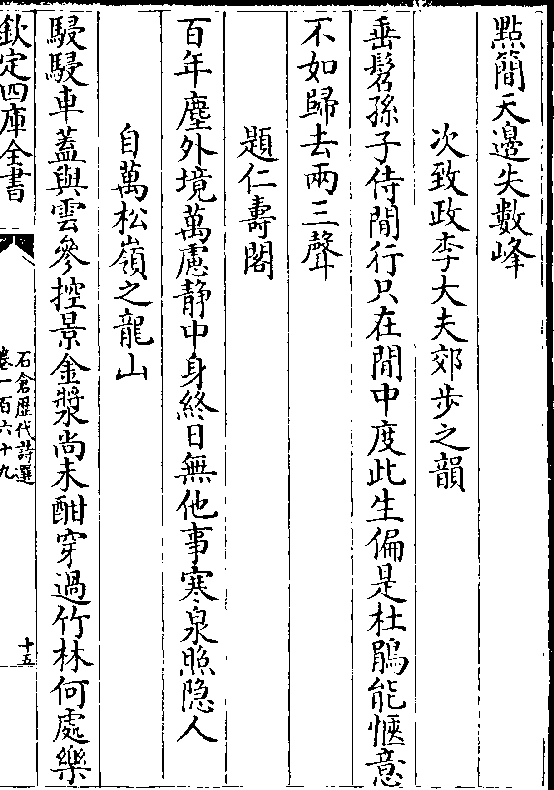 點簡天邊失數峰
次致政李大夫郊步之韻
垂髫孫子侍閒行只在閒中度此生偏是杜鵑能愜意
不如歸去兩三聲
題仁壽閣
百年塵外境萬慮静中身終日無他事寒泉照隐人
自萬松嶺之龍山
駸駸車蓋與雲參控景金漿尚未酣穿過竹林何處樂
欽定四庫全書
石倉歴代詩選
卷一百六十九
十五